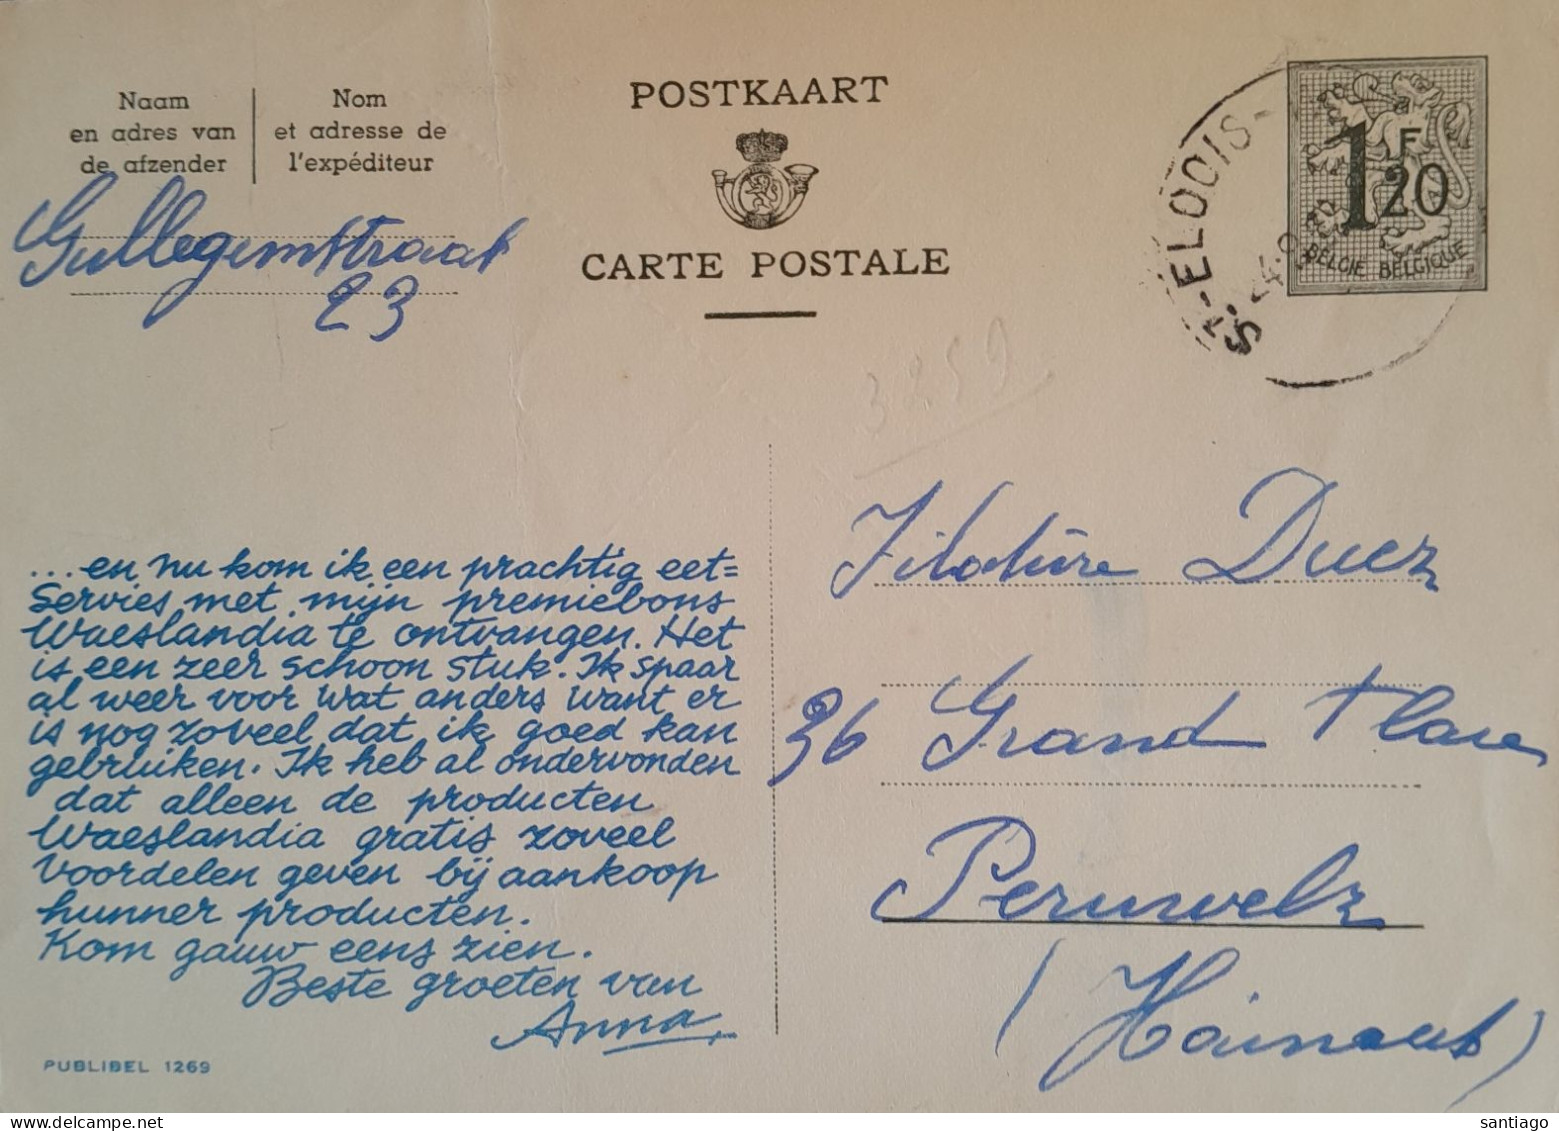 POSTKAART
CARTE POSTALE
Naam
en adres van
de afzender
Nom
et adresse de
l'expéditeur
Gullegemstraat
23
1F20
BELGIE BELGIQUE
ST-ELOOIS-
3259
... en nu kom ik een prachtig eet=
servies met mijn premiebons
Waeslandia te ontvangen. Het
is een zeer schoon stuk. Ik spaar
al weer voor wat anders want er
is nog zoveel dat ik goed kan
gebruiken. Ik heb al ondervonden
dat alleen de producten
Waeslandia gratis zoveel
voordelen geven bij aankoop
hunner producten.
Kom gauw eens zien.
Beste groeten van
Anna
PUBLIBEL 1269
Filature Duez
36 Grand Place
Peruwelz
(Hainaut)
santiago